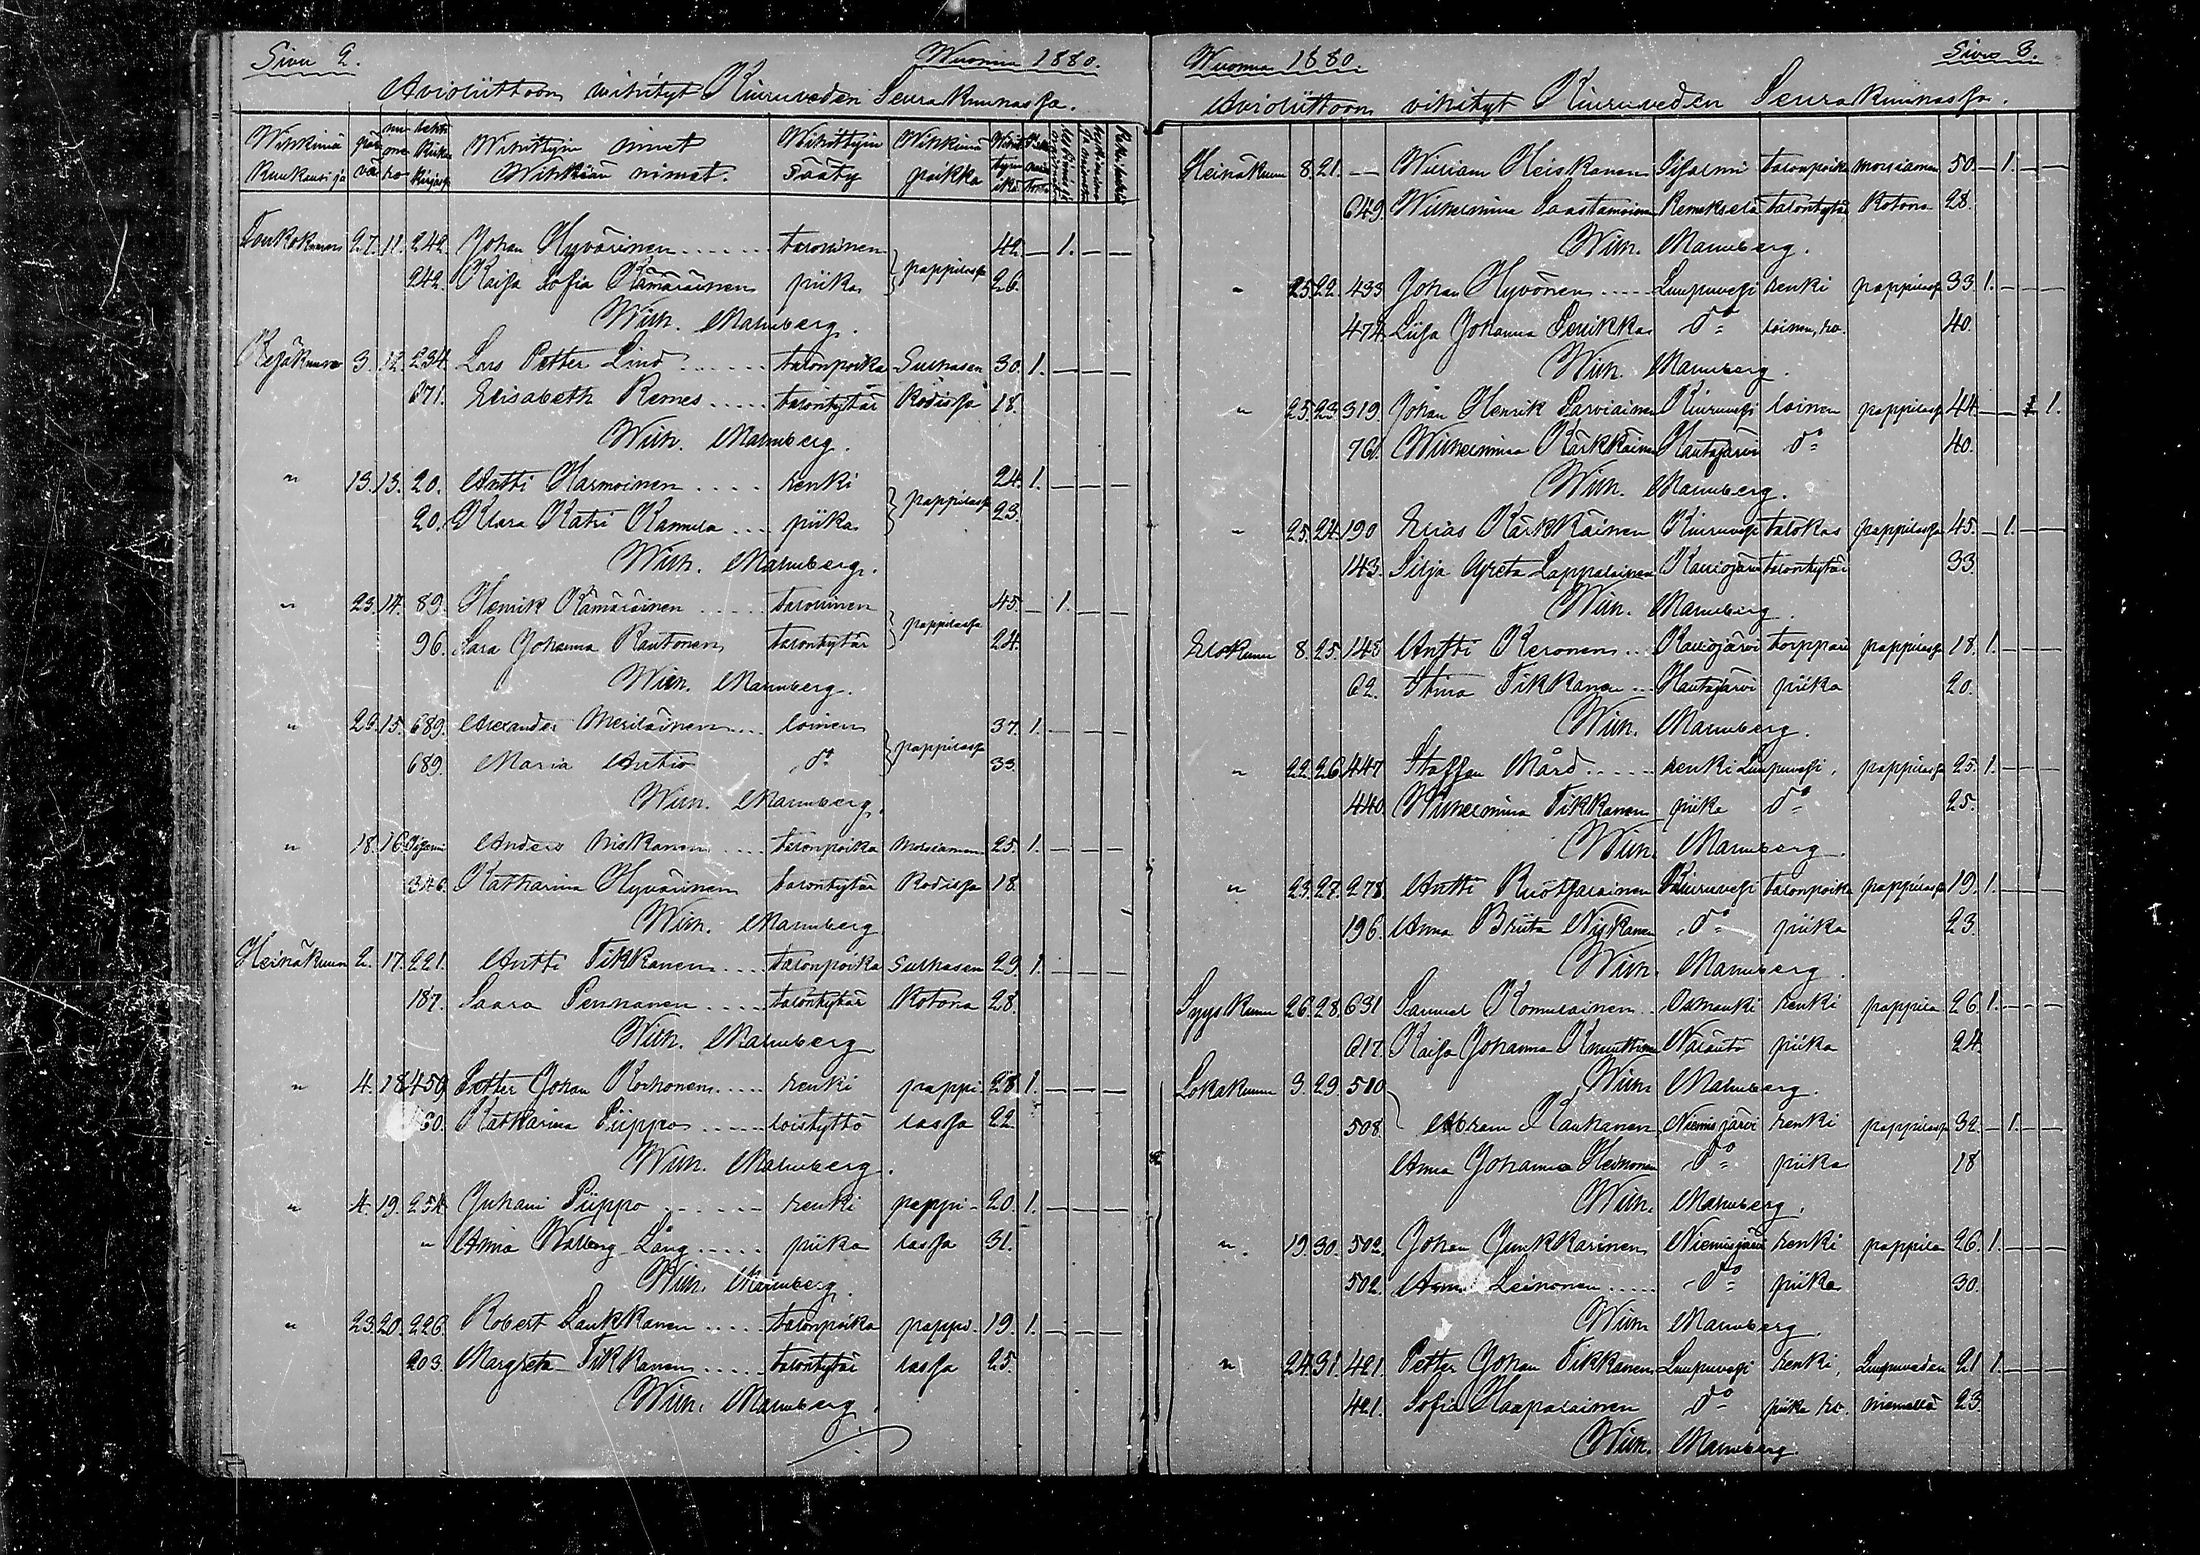 Sivu 2. Wuonna 1880.
Avioliittoon vihityt Kiuruveden Seurakunnassa.
Toukokuun 27. 11. 242. Johan Hyvärinen talollinen pappilassa 42. — 1. — —
242. Kaisa Sofia Kämäräinen piika 26.
Wilh. Malmberg.
Kesäkuun 3. 12. 234. Lars Petter Lind talonpoika Sulhasen 30. 1. — — —
671. Elisabeth Remes talontytär Kodissa 18.
Wilh. Malmberg.
" 13. 13. 20. Antti Harmoinen renki pappilassa 24. 1. — — —
20. Klara Katri piika 23.
Wilh. Malmberg.
" 23. 14. 89. Henrik Kämäräinen talollinen pappilassa 45. — 1. — —
96. Sara Johanna Rautonen talontytär 24.
Wilh. Malmberg.
" 23. 15. 689. Alexander Meriläinen loinen pappilassa 37. 1. — — —
689. Maria do 33.
Wilh. Malmberg.
" 18. 16. Anders Niskanen talonpoika Morsiamen 25. 1. — — —
346. Katharina Hyvärinen talontytär Kodissa 18.
Wilh. Malmberg
Heinäkuun 2. 17. 221. Antti Tikkanen talonpoika Sulhasen 29. 1. — — —
187. Saara Pennanen talontytär Kotona 28.
Wilh. Malmberg
" 4. 18. 450. Petter Johan Korhonen renki pappi- 28. 1. — — —
Katharina Piippo loistyttö lassa 22.
Wilh. Malmberg.
" 4. 19. 254. Juhani Piippo renki pappi- 20. 1. — — —
" Anna Walborg Lång piika lassa 31.
Wilh. Malmberg.
" 23. 20. 226. Robert Laukkanen talonpoika pappi- 19. 1. — — —
203. Margreta Tikkanen talontytär lassa 25.
Wilh. Malmberg.
Wuonna 1880. Sivu 3.
Avioliittoon vihityt Kiuruveden Seurakunnassa.
Heinäkuun 8. 21. — William Heiskanen Iisalmi talonpoika morsiamen 50. — 1. — —
649. Wilhelmina Saastamoinen Remeskylä talontytär Kotona 28.
Wilh. Malmberg.
" 25. 22. 433. Johan Hyvönen Luupuvesi renki pappilassa 33. 1. — — —
474. Liisa Johanna do loinen, 40.
Wilh. Malmberg.
" 25. 23. 319. Johan Henrik Sarviainen Kiuruvesi loinen pappilassa 44. — — 1.
760. Wilhelmina Kärkkäinen Hautajärvi do 40.
Wilh. Malmberg.
" 25. 24. 190 Elias Kärkkäinen Kiuruvesi talokas pappilassa 45. — 1. — —
143. Silja Greta Lappalainen Kalliojärvi talontytär 33.
Wilh. Malmberg.
Elokuun 8. 25. 148 Antti Keronen Kalliojärvi torppari pappilassa 18. 1. — — —
62. Stina Tikkanen Hautajärvi piika 20.
Wilh. Malmberg.
" 22. 26. 447 Staffan Mård renki Luupuvesi, pappilassa 25. 1. — — —
440. Wilhelmina Tikkanen piika do 25.
Wilh. Malmberg.
" 23. 27. 278. Antti Ruotsalainen Kiuruvesi talonpoika pappilassa 19. 1. — — —
196. Anna Briita Niskanen do piika 23.
Wilh. Malmberg.
Syyskuun 26. 28. 631 Samuel Komulainen Osmanki renki pappila 26. 1. — — —
617. Kaisa Johanna Knuuttinen Näläntö piika 24.
Wilh. Malmberg.
Lokakuun 3. 29. 510
508. Abram Kaukanen Niemisjärvi renki pappilassa 32. — 1. — —
Anna Johanna Heinonen do piika 18
Wilh. Malmberg.
" 19. 30. 502. Johan Junkkarinen Niemisjärvi renki pappila 26. 1. — — —
502. Leinonen do piika 30.
Wilh. Malmberg.
" 24. 31. 421. Petter Johan Tikkanen Luupuvesi renki, Luupuveden 21. 1. — — —
421. Sofia Haapalainen do piika niemellä 23.
Wilh. Malmberg.